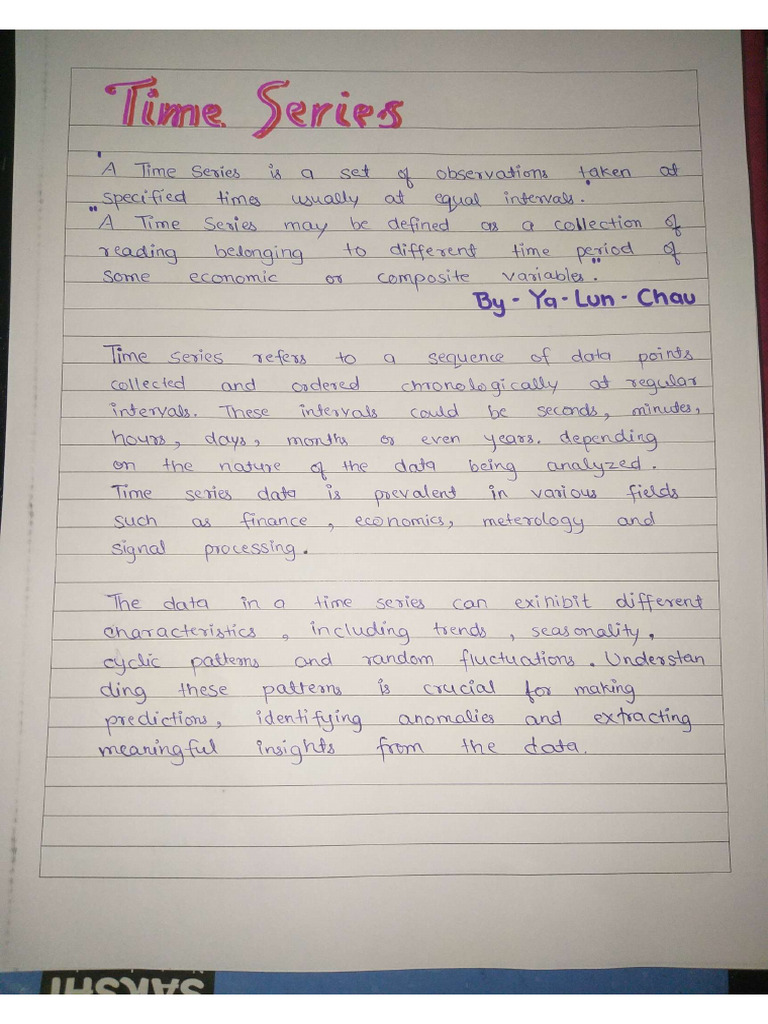 Time Series
' A Time Series is a set of observations taken at
specified times usually at equal intervals.'
" A Time Series may be defined as a collection of
reading belonging to different time period of
some economic or composite variables."
By - Ya - Lun - Chau
Time series refers to a sequence of data points
collected and ordered chronologically at regular
intervals. These intervals could be seconds, minutes,
hours, days, months or even years. depending
on the nature of the data being analyzed.
Time series data is prevalent in various fields
such as finance, economics, meterology and
signal processing.
The data in a time series can exihibit different
characteristics, including trends, seasonality,
cyclic patterns and random fluctuations. Understan
ding these patterns is crucial for making
predictions, identifying anomalies and extracting
meaningful insights from the data.
SAKSHI